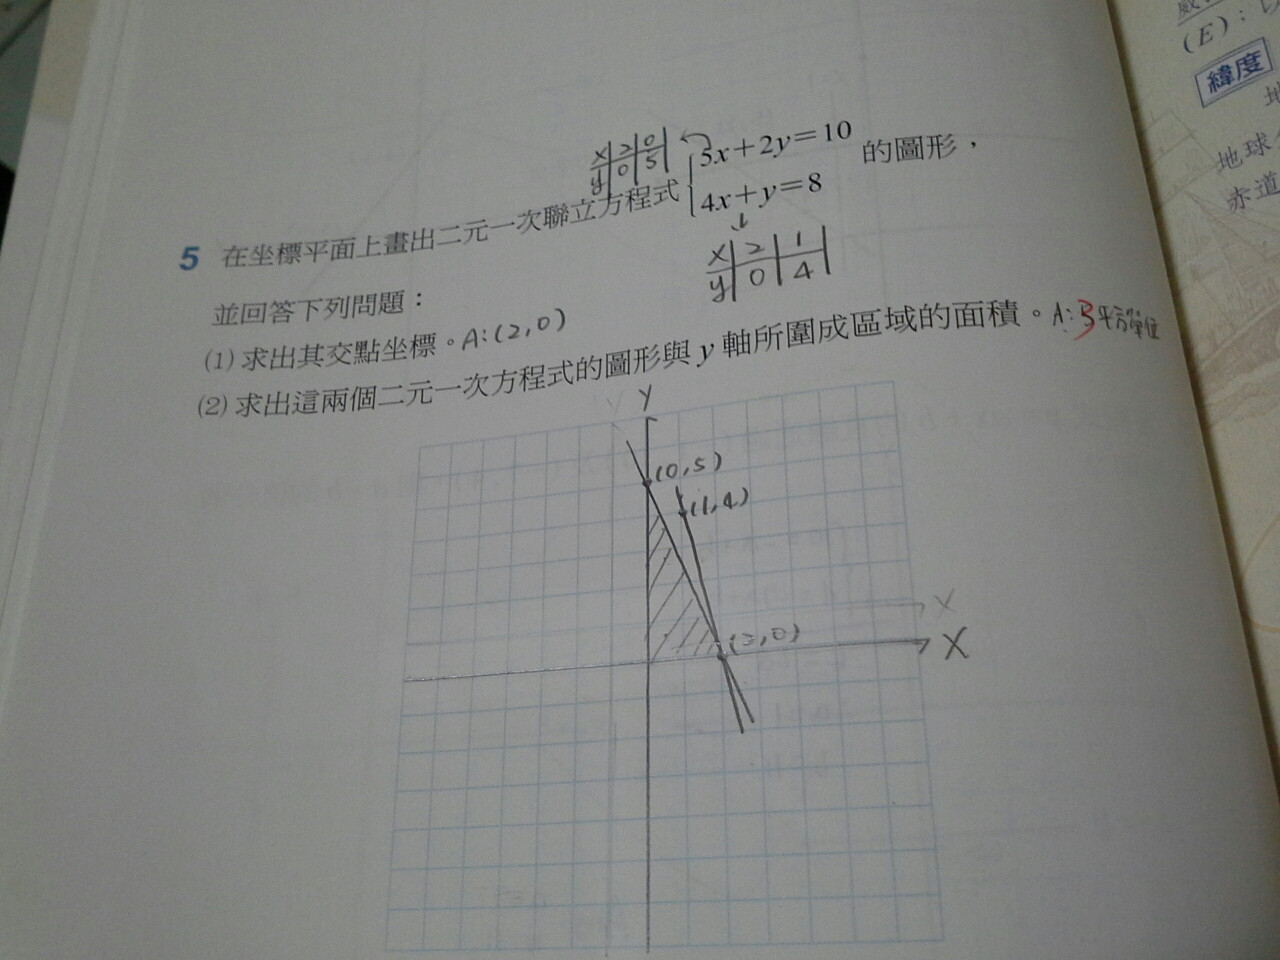 x 2 0
y 0 5
5 在坐標平面上畫出二元一次聯立方程式 5x+2y=10 的圖形，
4x+y=8
x 2 1
y 0 4
並回答下列問題：
(1) 求出其交點坐標。A:(2,0)
(2) 求出這兩個二元一次方程式的圖形與 y 軸所圍成區域的面積。A:3平方單位
Y
(0,5)
(1,4)
(2,0)
X
X
(E)：以
緯度
地
地球
赤道